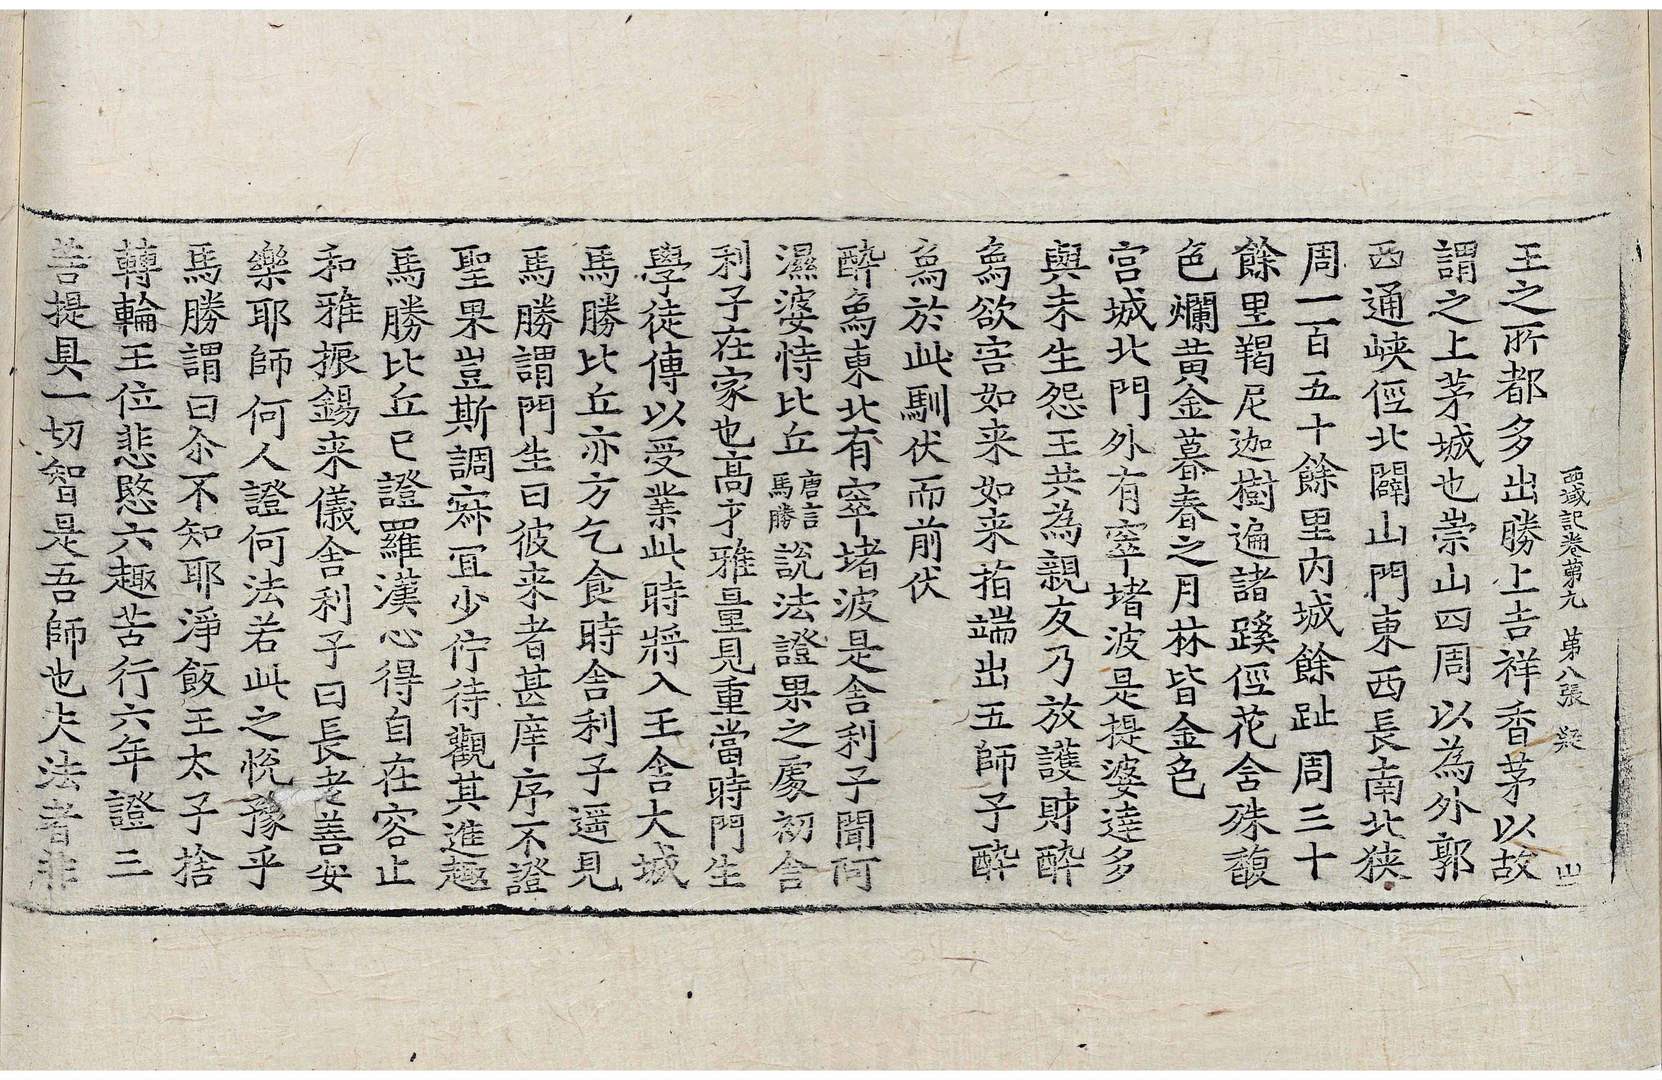 西域記卷第九 第八張 疑 山
王之所都多出勝上吉祥香茅以故
謂之上茅城也崇山四周以為外郭
西通峽徑北闢山門東西長南北狹
周一百五十餘里內城餘趾周三十
餘里羯尼迦樹遍諸蹊徑花含殊馥
色爛黃金暮春之月林皆金色
宮城北門外有窣堵波是提婆達多
與未生怨王共為親友乃放護財醉
為欲害如来如来指端出五師子醉
為於此馴伏而前伏
醉為東北有窣堵波是舍利子聞阿
濕婆恃比丘唐言馬勝說法證果之處初舍
利子在家也高才雅量見重當時門生
學徒傳以受業此時將入王舍大城
馬勝比丘亦方乞食時舍利子遥見
馬勝謂門生曰彼来者甚庠序不證
聖果豈斯調寂冝少佇待觀其進趣
馬勝比丘已證羅漢心得自在容止
和雅振錫来儀舍利子曰長老善安
樂耶師何人證何法若此之悅豫乎
馬勝謂曰尒不知耶淨飯王太子捨
轉輪王位悲愍六趣苦行六年證三
菩提具一切智是吾師也夫法者非